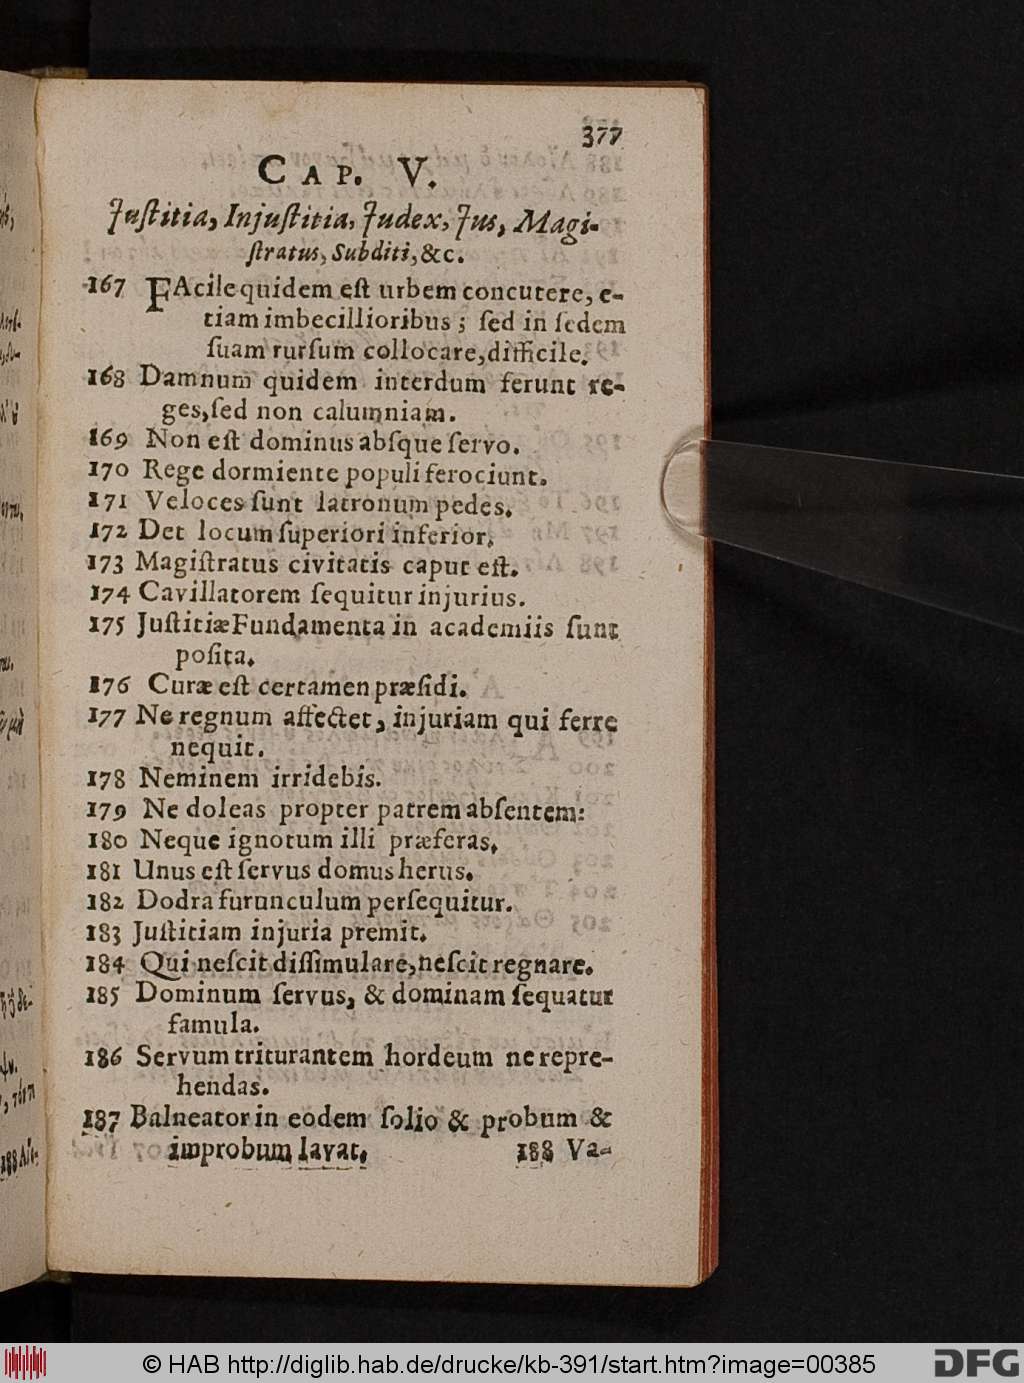 377
CAP. V.
Juſtitia, Injuſtitia, Judex, Jus, Magi-
ſtratus, Subditi, &c.
167 FAcile quidem eſt urbem concutere, e-
tiam imbecillioribus ; ſed in ſedem
ſuam rurſum collocare, difficile.
168 Damnum quidem interdum ferunt re-
ges, ſed non calumniam.
169 Non eſt dominus abſque ſervo.
170 Rege dormiente populi ferociunt.
171 Veloces ſunt latronum pedes.
172 Det locum ſuperiori inferior.
173 Magiſtratus civitatis caput eſt.
174 Cavillatorem ſequitur injurius.
175 Juſtitiæ Fundamenta in academiis ſunt
poſita.
176 Curæ eſt certamen præſidi.
177 Ne regnum affectet, injuriam qui ferre
nequit.
178 Neminem irridebis.
179 Ne doleas propter patrem abſentem:
180 Neque ignotum illi præferas,
181 Unus eſt ſervus domus herus.
182 Dodra furunculum perſequitur.
183 Juſtitiam injuria premit.
184 Qui neſcit diſſimulare, neſcit regnare.
185 Dominum ſervus, & dominam ſequatur
famula.
186 Servum triturantem hordeum ne repre-
hendas.
187 Balneator in eodem ſolio & probum &
improbum lavat.
188 Va-
© HAB http://diglib.hab.de/drucke/kb-391/start.htm?image=00385
DFG